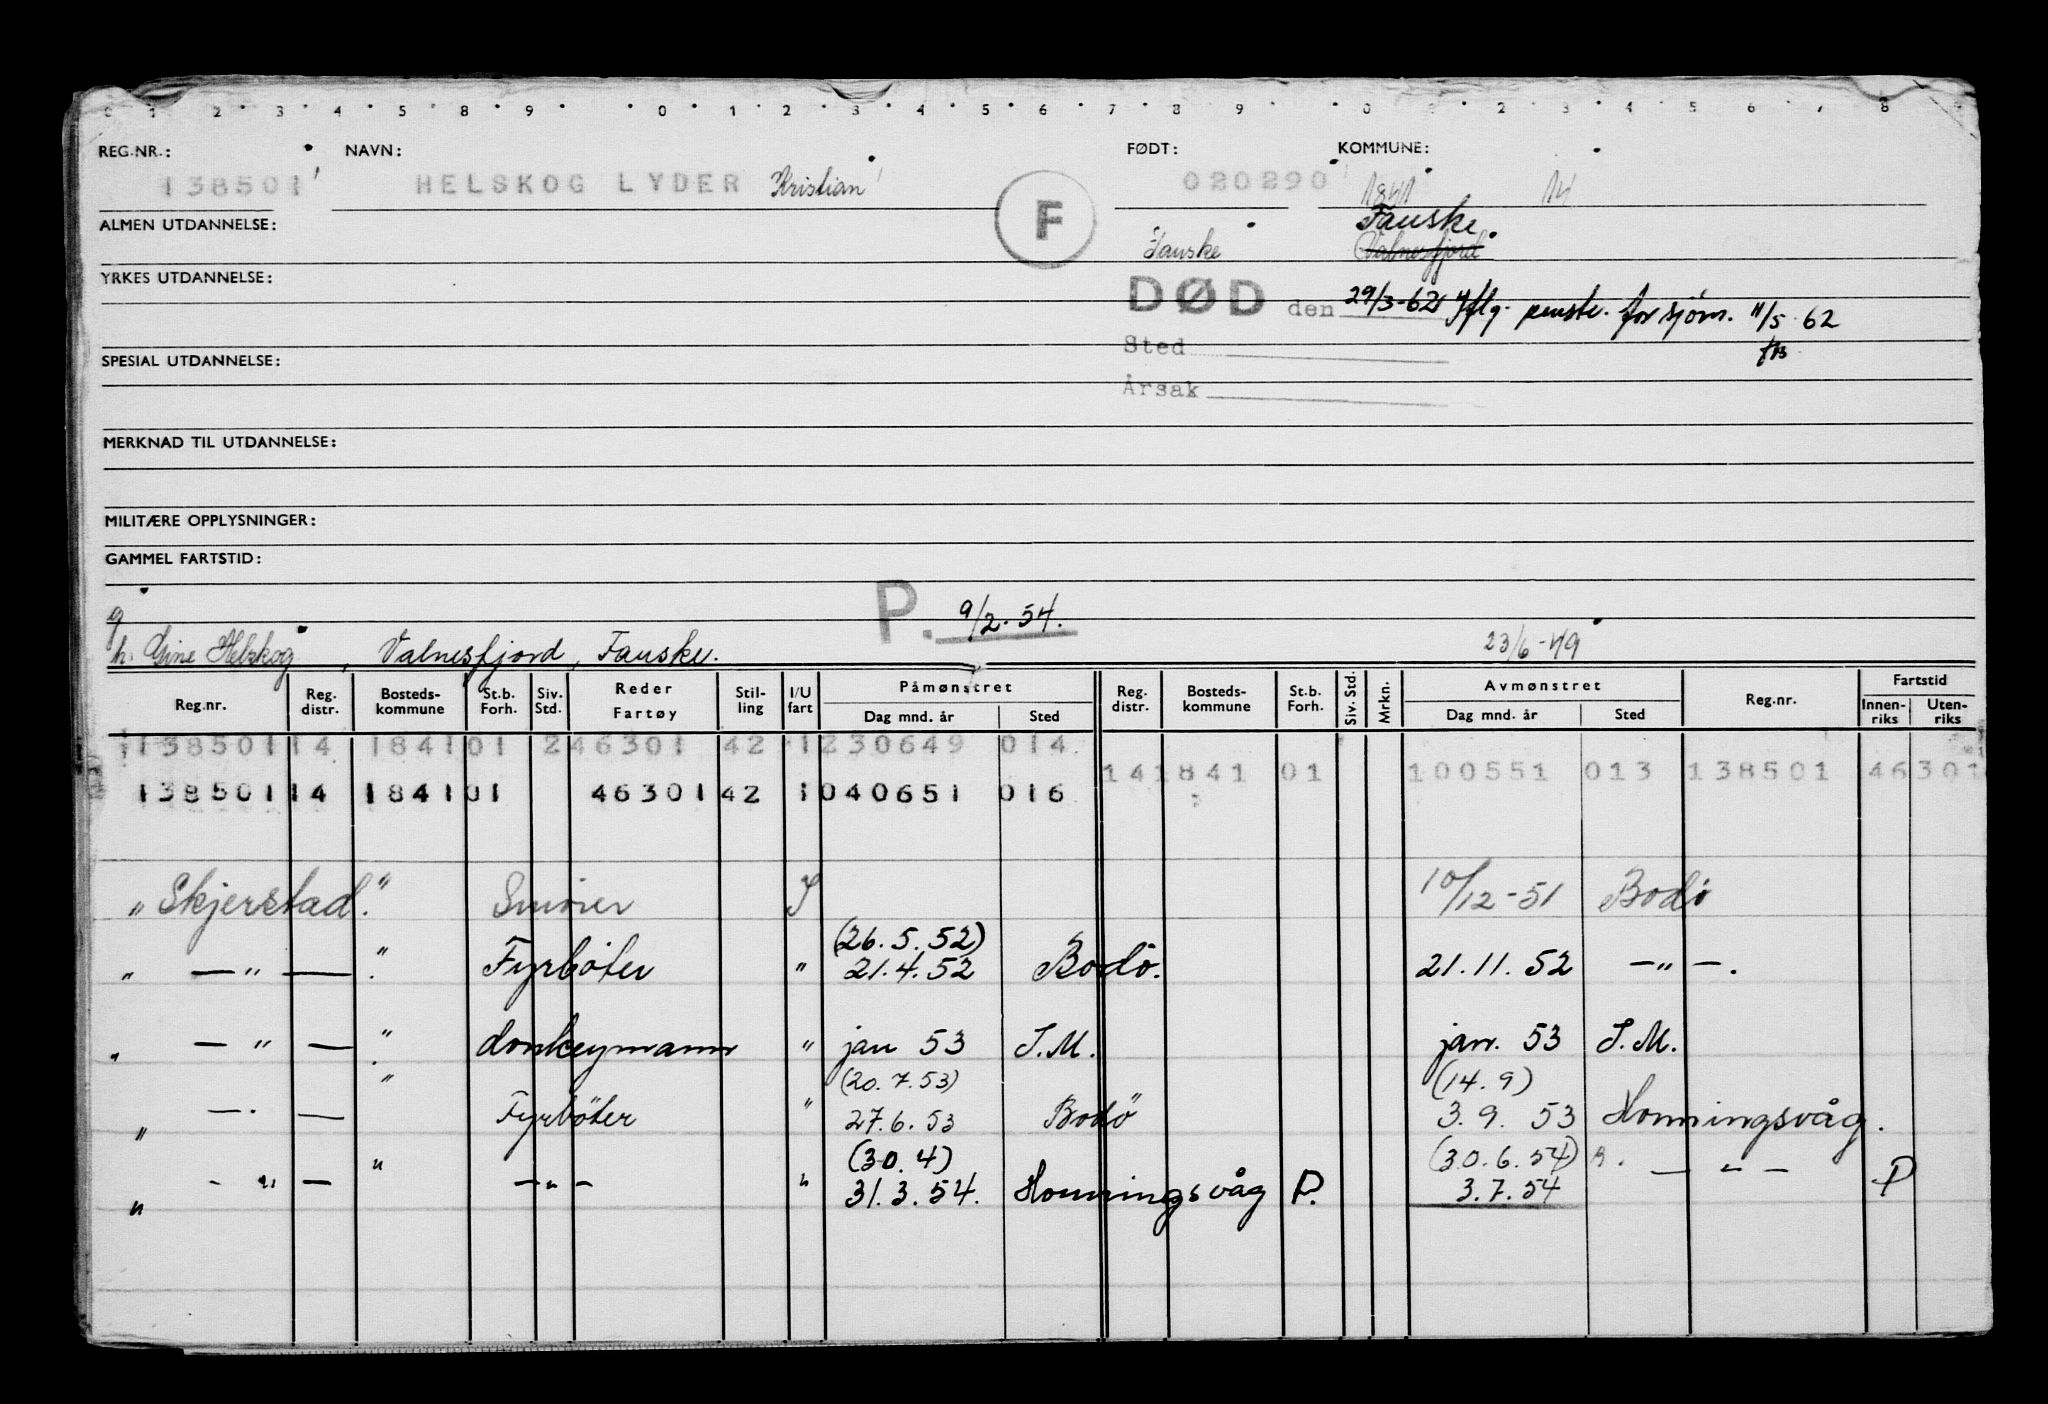 0 1 2 3 4 5 8 9 0 1 2 3 4 5 6 7 8 9 0 2 3 4 5 6 7 8
REG.NR.: NAVN: FØDT: KOMMUNE:
138501 HELSKOG LYDER Kristian 020290 1841 14
F
ALMEN UTDANNELSE: Fauske Fauske
Valnesfjord
YRKES UTDANNELSE:
DØD den 29/3-62 iflg. penstr. for sjøm. 11/5 62
Sted
SPESIAL UTDANNELSE:
Årsak
MERKNAD TIL UTDANNELSE:
MILITÆRE OPPLYSNINGER:
GAMMEL FARTSTID:
g P. 9/2-54.
h. Gine Helskog, Valnesfjord, Fauske. 23/6-49
Reg.nr. Reg. distr. Bosteds-kommune St.b. Forh. Siv. Std. Reder Fartøy Stil-ling I/U fart Påmønstret Dag mnd. år Sted Reg. distr. Bosteds-kommune St.b. Forh. Siv. Std. Mrkn. Avmønstret Dag mnd. år Sted Reg.nr. Fartstid Innen-riks Uten-riks
138501 14 1841 01 2 46301 42 1 230649 014
14 1841 01 100551 013 138501 46301
138501 14 1841 01 46301 42 1 040651 016
"Skjerstad." Smører I 10/12-51 Bodø
(26.5.52)
" — " — " Fyrbøter " 21.4.52 Bodø. 21.11.52 — " —.
" — " — " donkeymann " jan 53 I.M. jan. 53 I.M.
(20.7.53) (14.9)
" — " — " Fyrbøter " 27.6.53 Bodö 3.9.53 Honningsvåg.
(30.4) (30.6.54)
" - " — " — " — " 31.3.54. Honningsvåg P. 3.7.54 — " — P